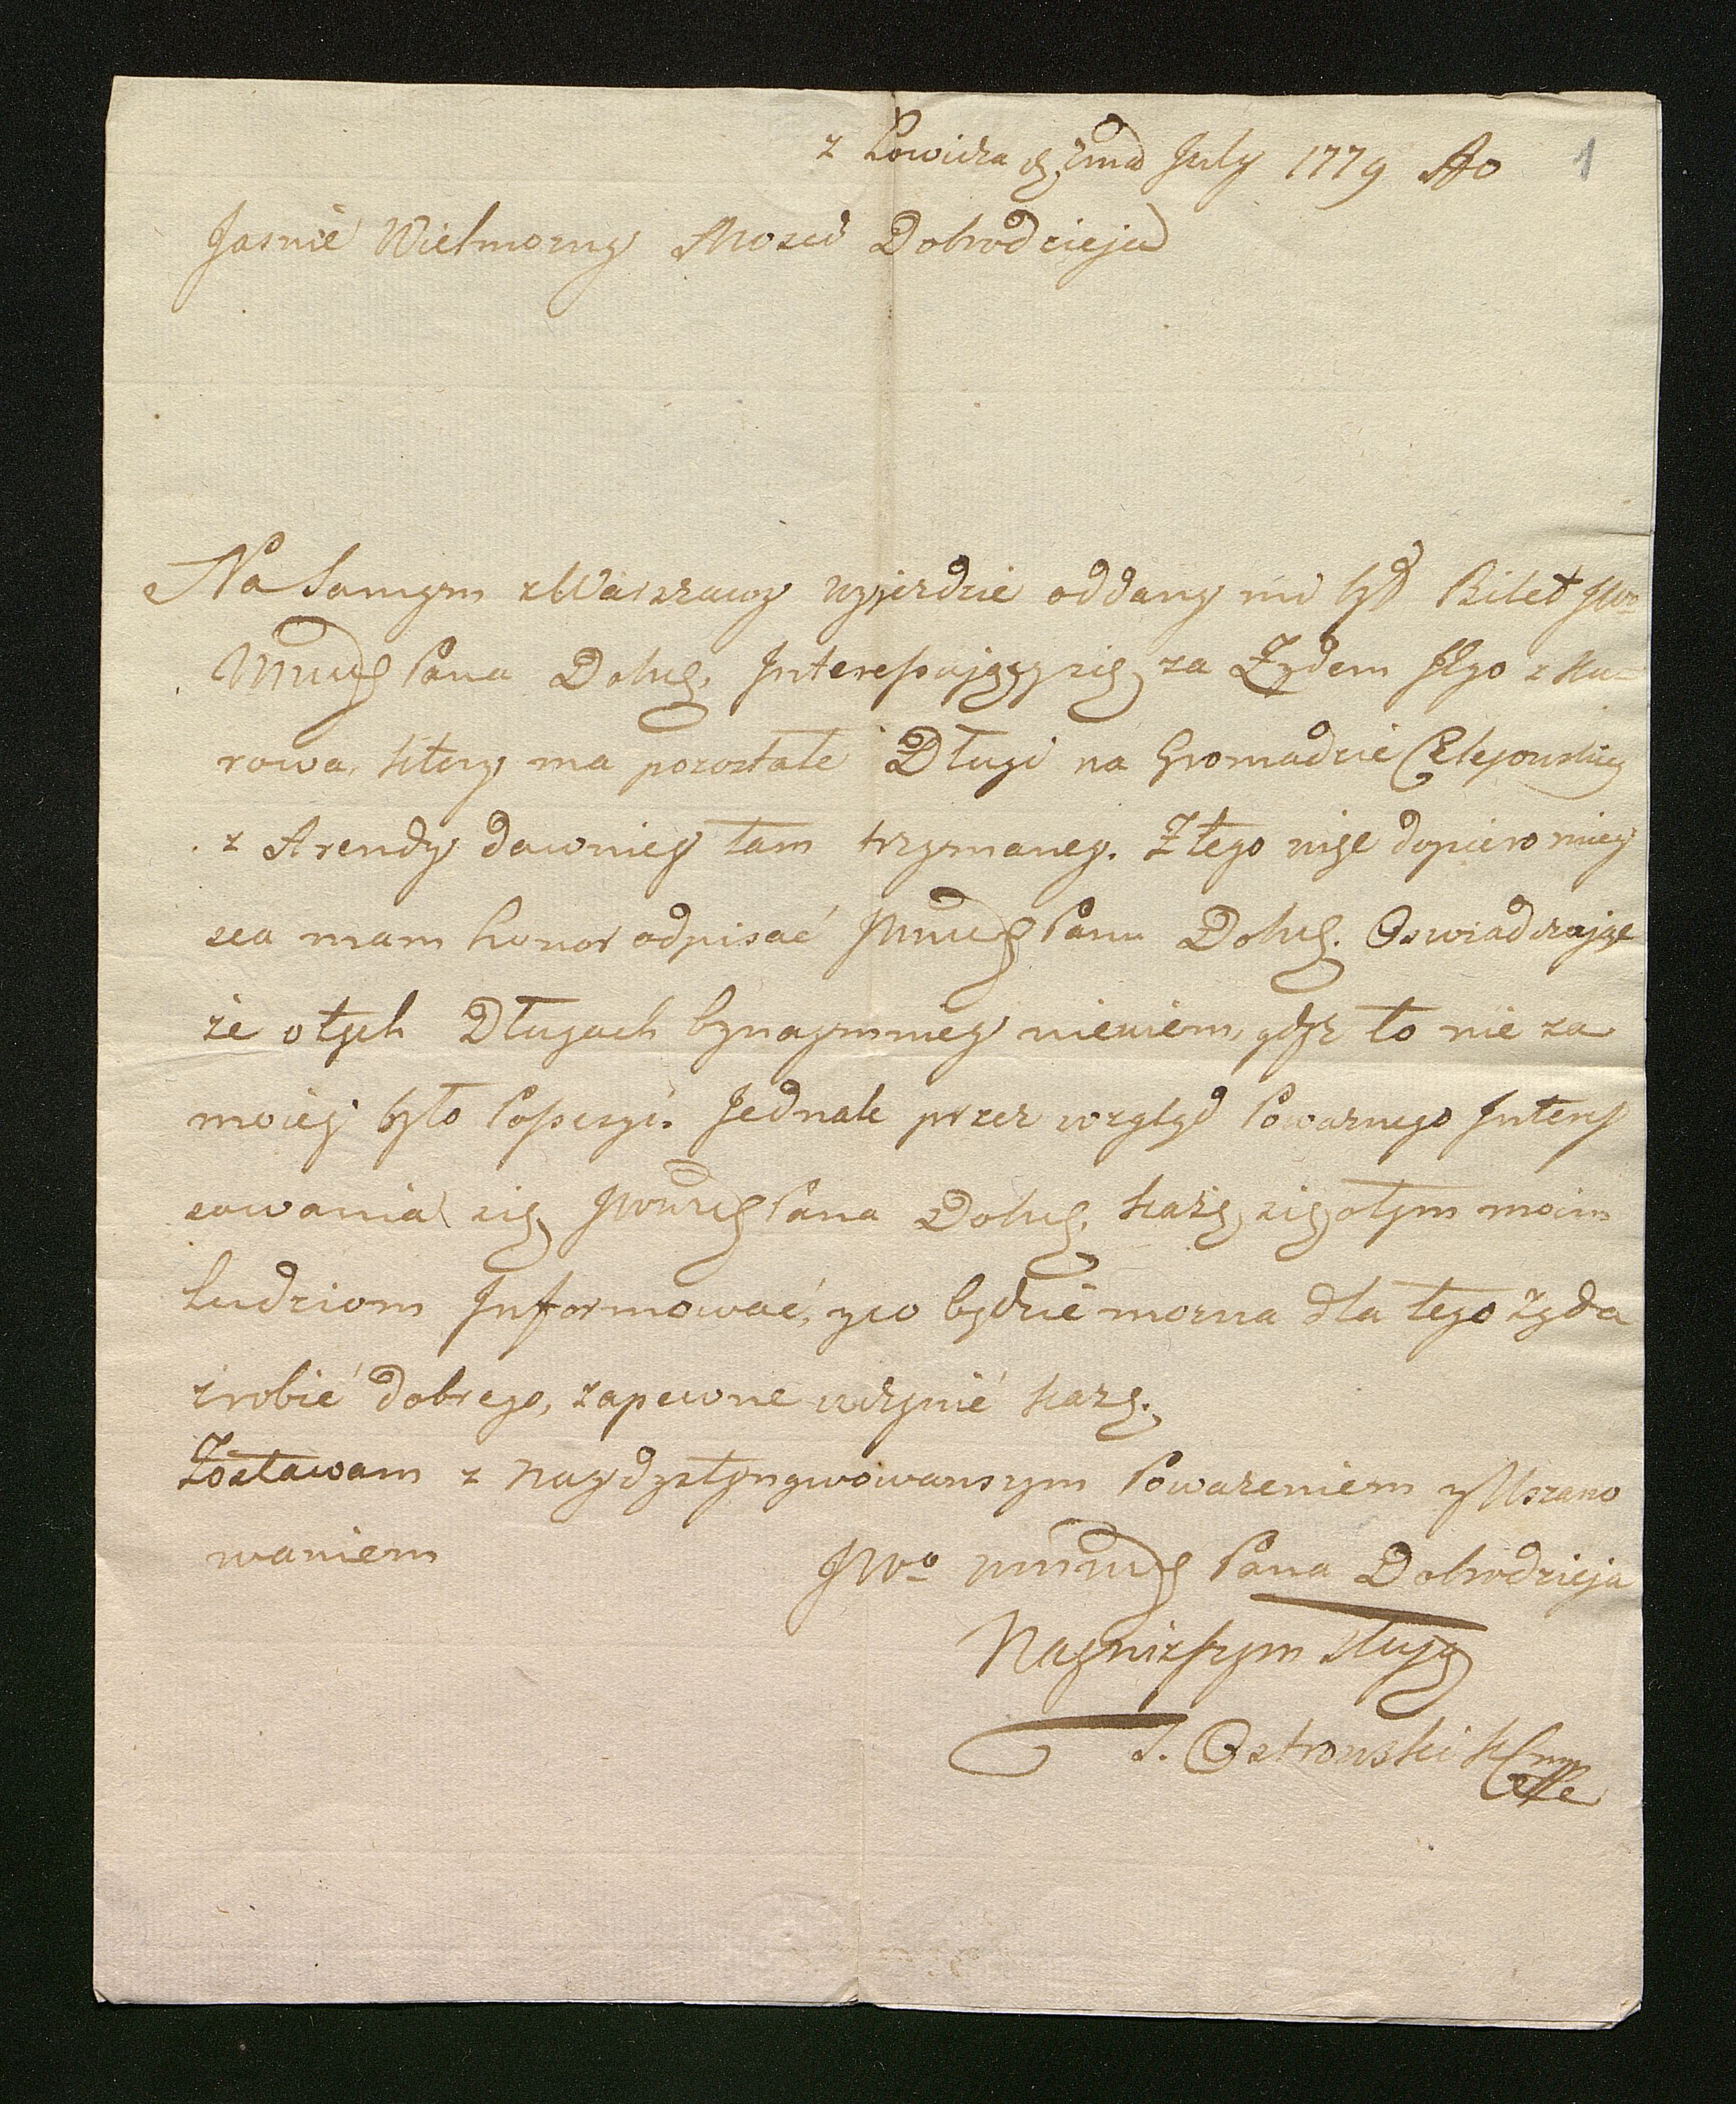 z Łowicza d. 2ma July 1779 Ao
1
Jasnie Wielmozny Mosci Dobrodzieju
Na samym z Warszawy wyjezdzie oddany mi był Bilet JW
Pana Dobrg. Interessujący się za Zydem z Ku-
rowa, ktory ma pozostałe Długi na Gromadzie Celejowskiey
z Arendy dawniey tam trzymaney. Z tego więc dopiero miey
sca mam honor odpisać Panu Dobrg. Oswiadczając
że o tych Długach bynaymniey niewiem, gdyż to nie za
moiey było Possessyi. Jednak przez wzgląd Powaznego Interes
sowania się Pana Dobrg. każę się o tym moim
ludziom Informować, y co będzie mozna dla tego Zyda
zrobić dobrego, zapewne uczynić każę.
Zostawam z naydystyngwowanszym Powazeniem y Uszano
waniem
JWo Pana Dobrodzieja
Nayniższym sługą
T. Ostrowski